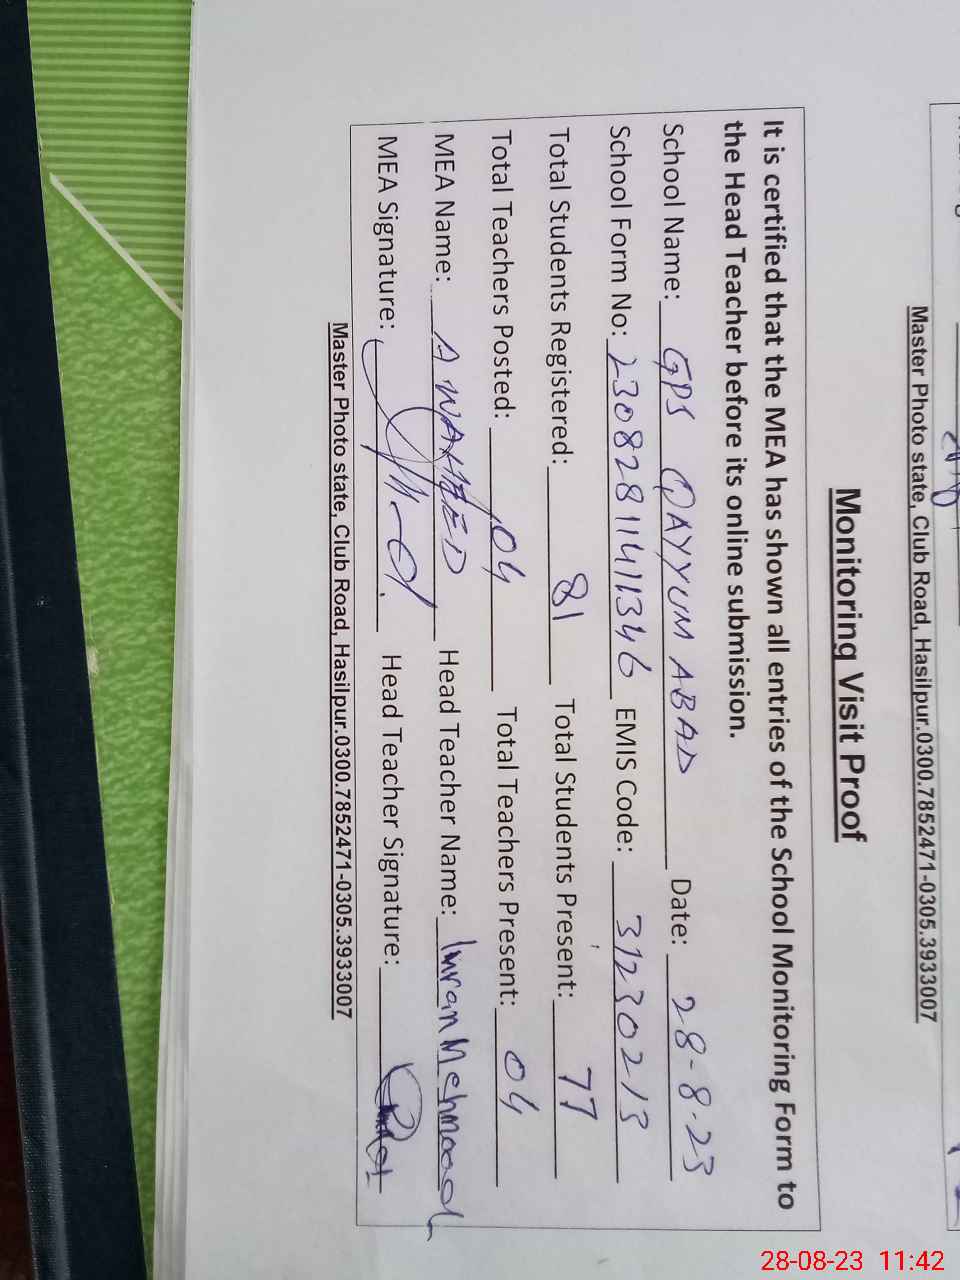 Master Photo state, Club Road, Hasilpur.0300.7852471-0305.3933007
Monitoring Visit Proof
It is certified that the MEA has shown all entries of the School Monitoring Form to
the Head Teacher before its online submission.
School Name: GPS QAYYUM ABAD Date: 28-8-23
School Form No: 23082811411346 EMIS Code: 31230213
Total Students Registered: 81 Total Students Present: 77
Total Teachers Posted: 04 Total Teachers Present: 04
MEA Name: A WAHEED Head Teacher Name: Imran Mehmood
MEA Signature: Head Teacher Signature:
Master Photo state, Club Road, Hasilpur.0300.7852471-0305.3933007
28-08-23 11:42